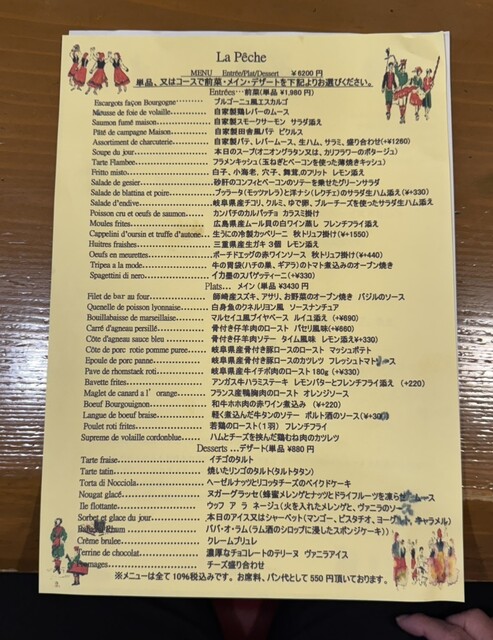 La Pêche
MENU Entrée/Plat/Dessert ￥6200 円
単品、又はコースで前菜・メイン・デザートを下記よりお選びください。
Entrées…前菜(単品 ¥1,980 円)
Escargots façon Bourgogne………… ブルゴーニュ風エスカルゴ
Mousse de foie de volaille………… 自家製鶏レバーのムース
Saumon fumé maison………… 自家製スモークサーモン サラダ添え
Pâté de campagne Maison………… 自家製田舎風パテ ピクルス
Assortiment de charcuterie………… 自家製パテ、レバームース、生ハム、サラミ、盛り合わせ(+¥1260)
Soupe du jour………… 本日のスープ(オニオングラタン又は、カリフラワーのポタージュ)
Tarte Flambee………… フラメンキッシュ(玉ねぎとベーコンを使った薄焼きキッシュ)
Fritto misto………… 白子、小海老、穴子、舞茸、のフリット レモン添え
Salade de gesier………… 砂肝のコンフィとベーコンのソテーを乗せたグリーンサラダ
Salade de blattina et poire………… ブッラータ(モッツァレラ)と洋ナシ(レクチェ)のサラダ生ハム添え(¥+330)
Salade d'endive………… 岐阜県産チコリ、クルミ、ゆで卵、ブルーチーズを使ったサラダ生ハム添え
Poisson cru et oeufs de saumon…… カンパチのカルパッチョ カラスミ掛け
Moules frites………… 広島県産ムール貝の白ワイン蒸し フレンチフライ添え
Cappelini d'oursin et truffe d'autone… 生うにの冷製カッペリーニ 秋トリュフ掛け(¥+1550)
Huitres fraishes………… 三重県産生ガキ 3個 レモン添え
Oeufs en meurettes………… ポーチドエッグの赤ワインソース 秋トリュフ掛け(¥+440)
Tripea a la mode………… 牛の胃袋(ハチの巣、ギアラ)のトマト煮込みのオーブン焼き
Spagettini di nero………… イカ墨のスパゲッティーニ(¥+330)
Plats… メイン (単品 ¥3430 円
Filet de bar au four………… 師崎産スズキ、アサリ、お野菜のオーブン焼き バジルのソース
Quenelle de poisson lyonnaise…… 白身魚のクネルリヨン風 ソースナンチュア
Bouillabaisse de marseillaise…… マルセイユ風ブイヤベース ルイユ添え (+690)
Carré d'agneau persillé………… 骨付き仔羊肉のロースト パセリ風味(+¥660)
Côte d'agneau sauce bleu………… 骨付き仔羊肉ソテー タイム風味 レモン添え¥+330)
Côte de porc rotio pomme puree… 岐阜県産骨付き豚ロースのロースト マッシュポテト
Epoule de porc panne………… 岐阜県産骨付き豚ロースのカツレツ フレッシュトマトソース
Pave de rhomstaek roti………… 岐阜県産牛イチボ肉のロースト180g (+¥330)
Bavette frites………… アンガス牛ハラミステーキ レモンバターとフレンチフライ添え (+220)
Maglet de canard a l' orange……… フランス産鴨胸肉のロースト オレンジソース
Boeuf Bourguignon………… 和牛ホホ肉の赤ワイン煮込み (¥+220)
Langue de boeuf braise………… 軽く煮込んだ牛タンのソテー ポルト酒のソース(¥+
Poulet roti frites………… 若鶏のロースト(1羽) フレンチフライ
Supreme de volaille cordonblue…… ハムとチーズを挟んだ鶏むね肉のカツレツ
Desserts …デザート(単品 ¥880 円
Tarte fraise………… イチゴのタルト
Tarte tatin………… 焼いたリンゴのタルト(タルトタタン)
Torta di Nocciola………… ヘーゼルナッツとリコッタチーズのベイクドケーキ
Nougat glacé………… ヌガーグラッセ(蜂蜜メレンゲとナッツとドライフルーツを凍らせ ムース
Ile flottante………… ウッフ ア ラ ネージュ(火を入れたメレンゲと、ヴァニラのソー
Sorbet et glace du jour………… 本日のアイス又はシャーベット(マンゴー、ピスタチオ、ヨーグルト、キャラメル)
ババ・オ・ラム(ラム酒のシロップに浸したスポンジケーキ)
Crème brulee………… クレームブリュレ
Terrine de chocolat………… 濃厚なチョコレートのテリーヌ ヴァニラアイス
Fromages………… チーズ盛り合わせ
※メニューは全て 10%税込みです。お席料、パン代として 550 円頂いております。